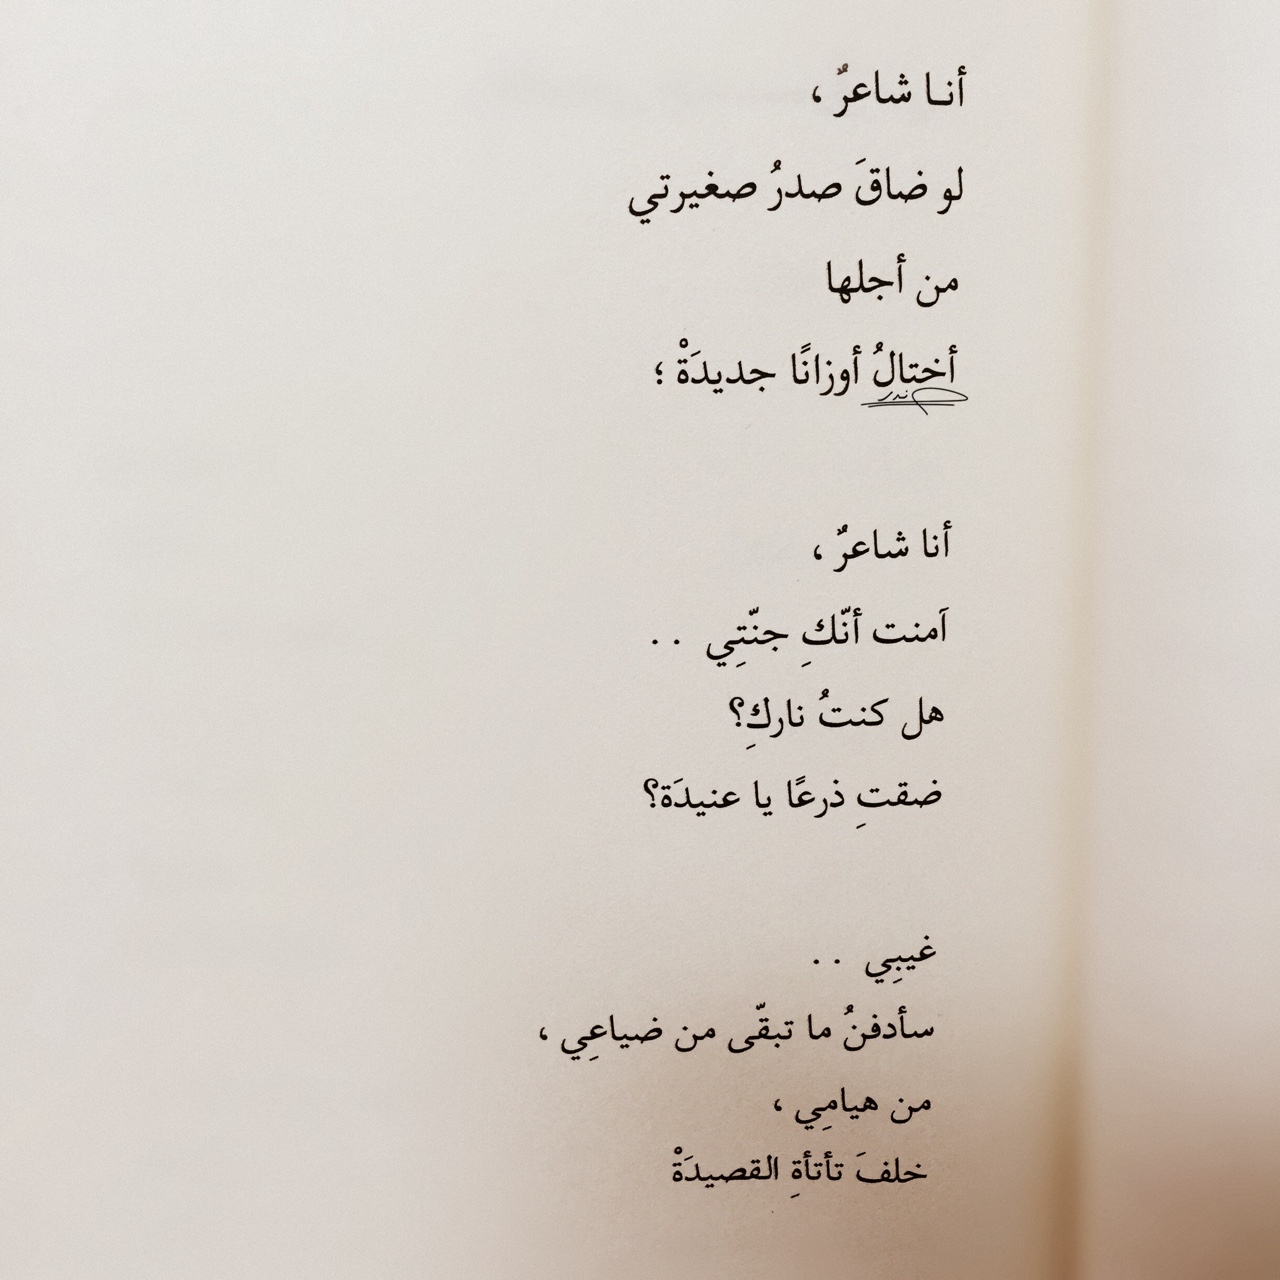 أنا شاعرٌ ،
لو ضاقَ صدرُ صغيرتي
من أجلها
أختالُ أوزانًا جديدَةْ ؛
أنا شاعرٌ ،
آمنت أنّكِ جنّتِي . .
هل كنتُ ناركِ؟
ضقتِ ذرعًا يا عنيدَة؟
غيبِي . .
سأدفنُ ما تبقّى من ضياعِي ،
من هيامِي ،
خلفَ تأتأةِ القصيدَةْ